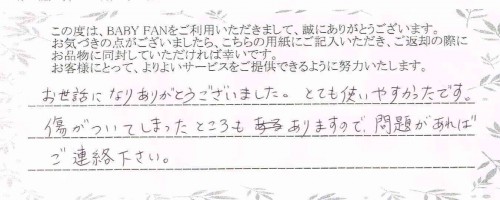 この度は、BABY FANをご利用いただきまして、誠にありがとうございます。
お気づきの点がございましたら、こちらの用紙にご記入いただき、ご返却の際に
お品物に同封していただければ幸いです。
お客様にとって、よりよいサービスをご提供できるように努力いたします。
お世話になりありがとうございました。とても使いやすかったです。
傷がついてしまったところもありますので、問題があれば
ご連絡下さい。